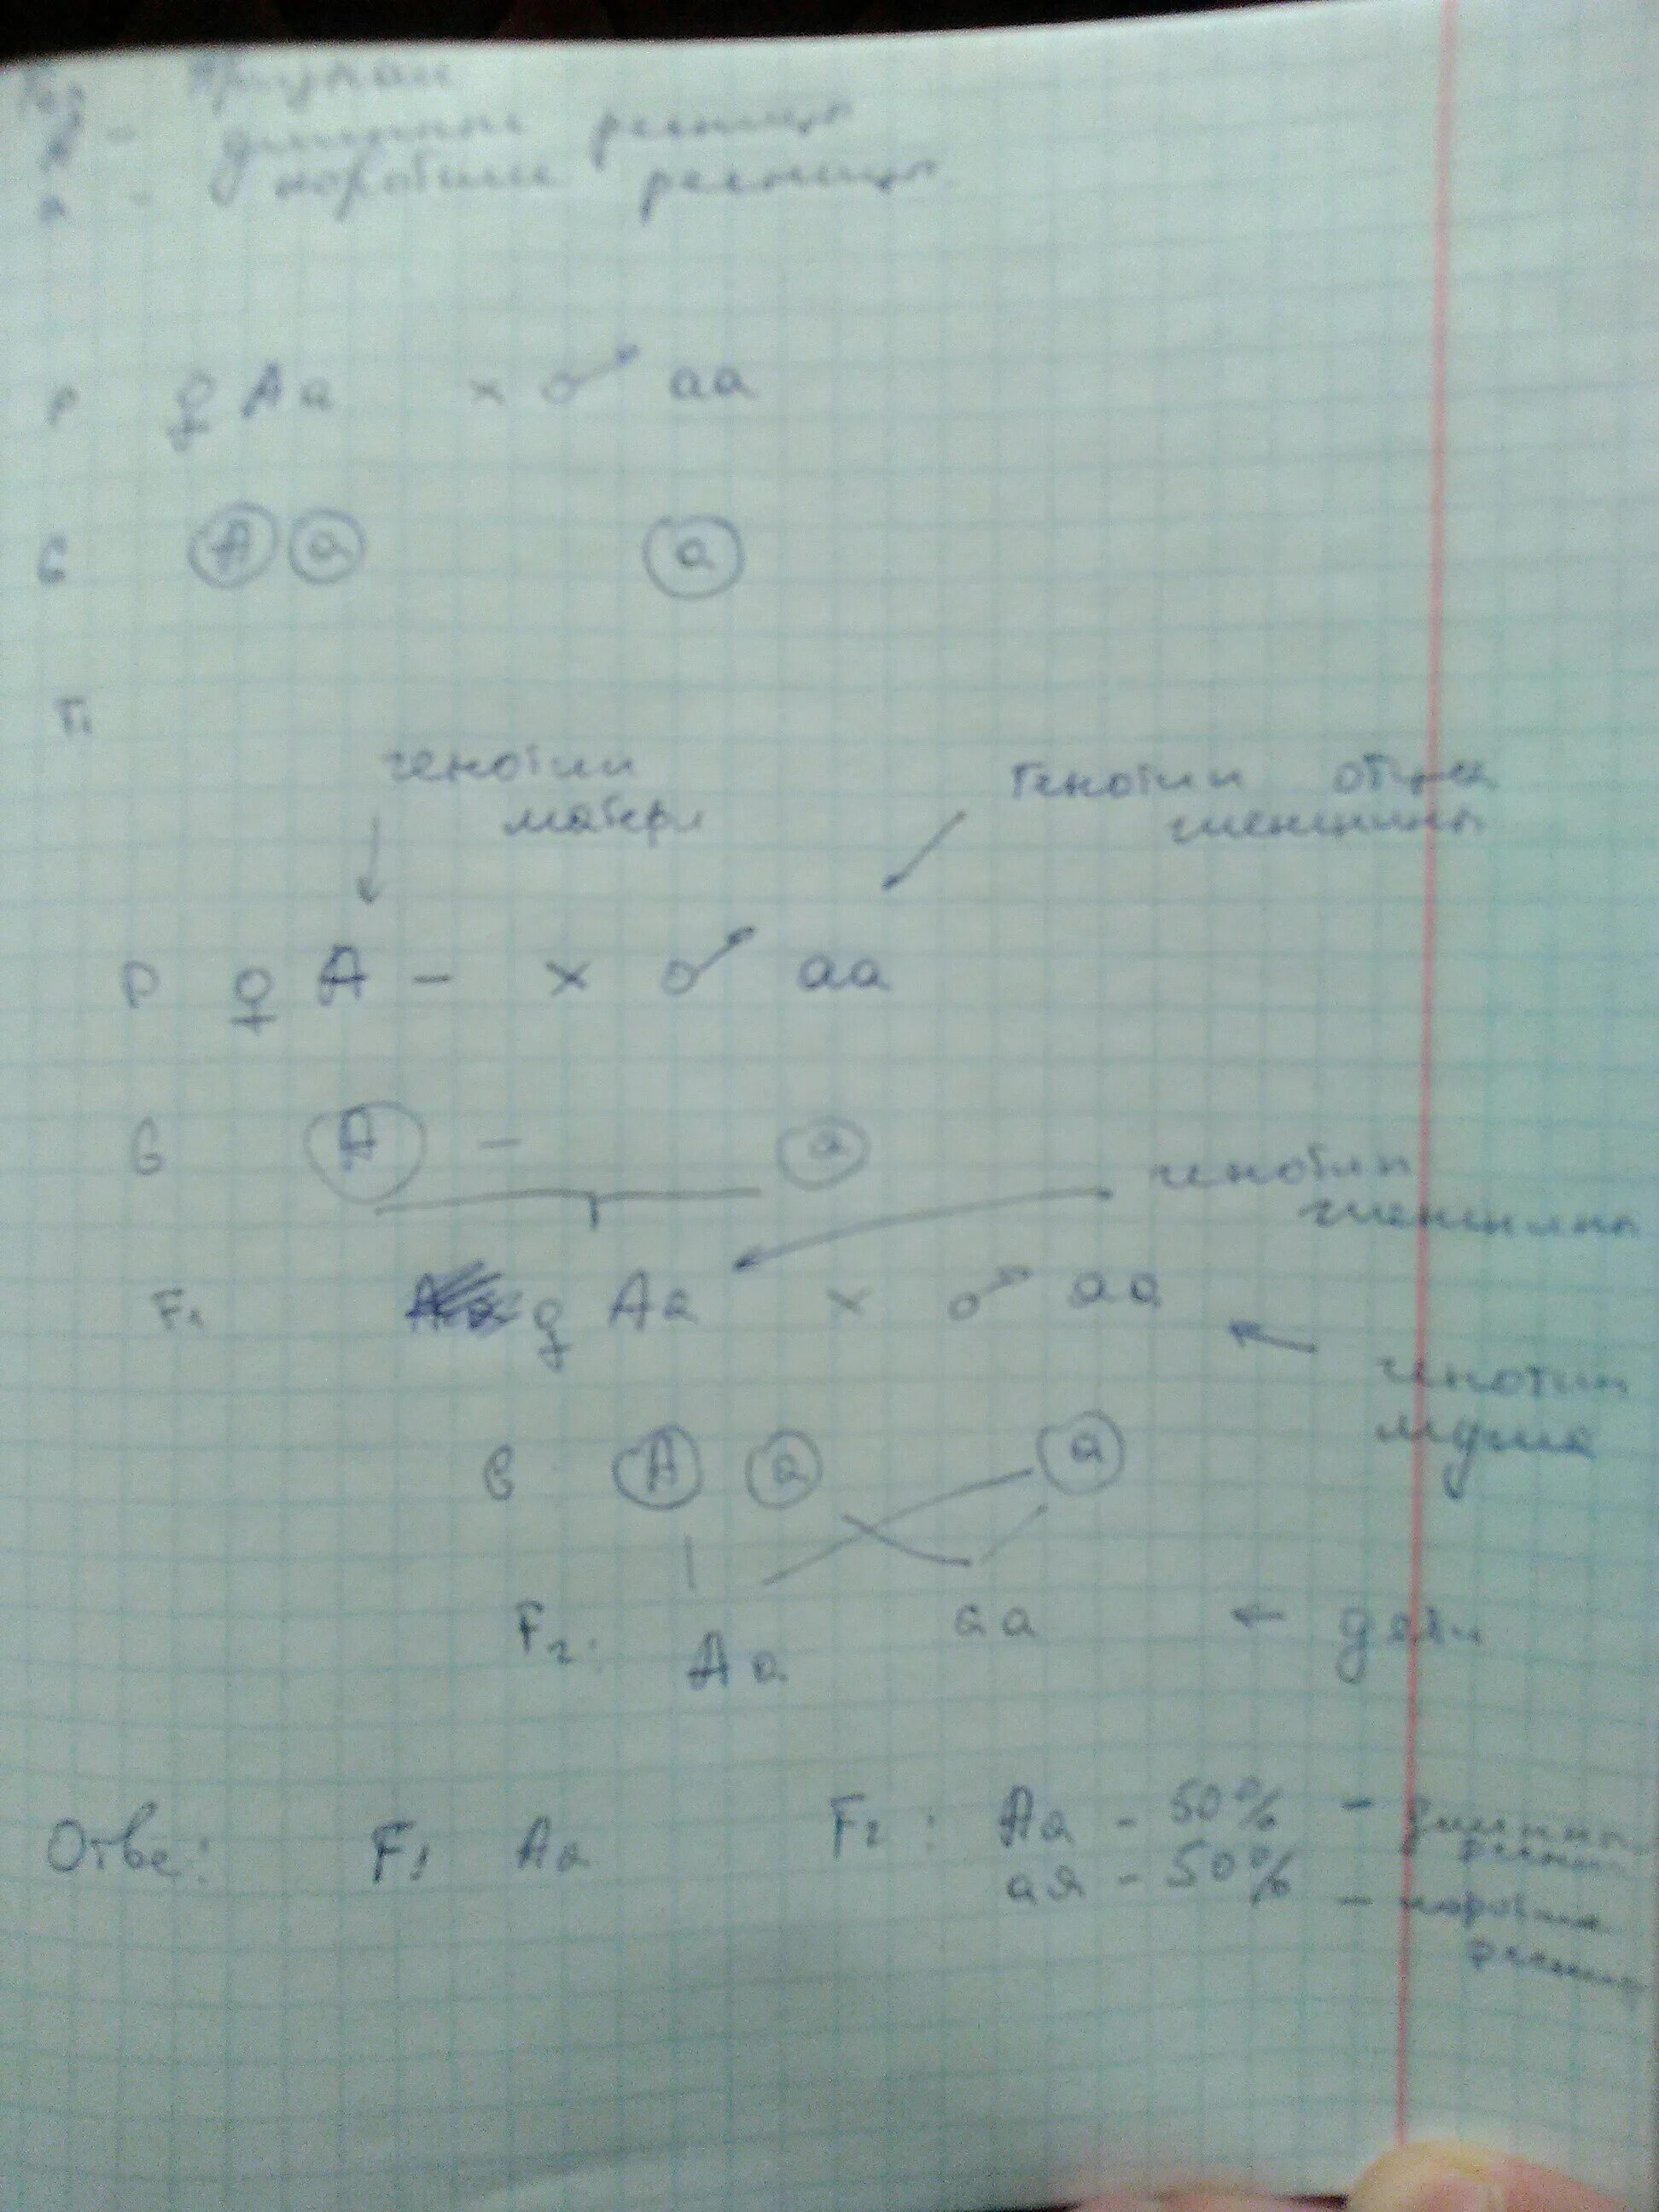 Ген Признак
A - длинные ресницы
a - короткие ресницы
P ♀ Aa × ♂ aa
G A a a
F1
генотип матери
Генотип отца женщины
P ♀ A — × ♂ aa
G A — a
генотип женщины
F1 ♀ Aa × ♂ aa
генотип мужа
G A a a
F2: Aa aa ← дети
Отве: F1 Aa F2: Aa - 50% - длинны
ресниц
aa - 50% - коротки
ресниц